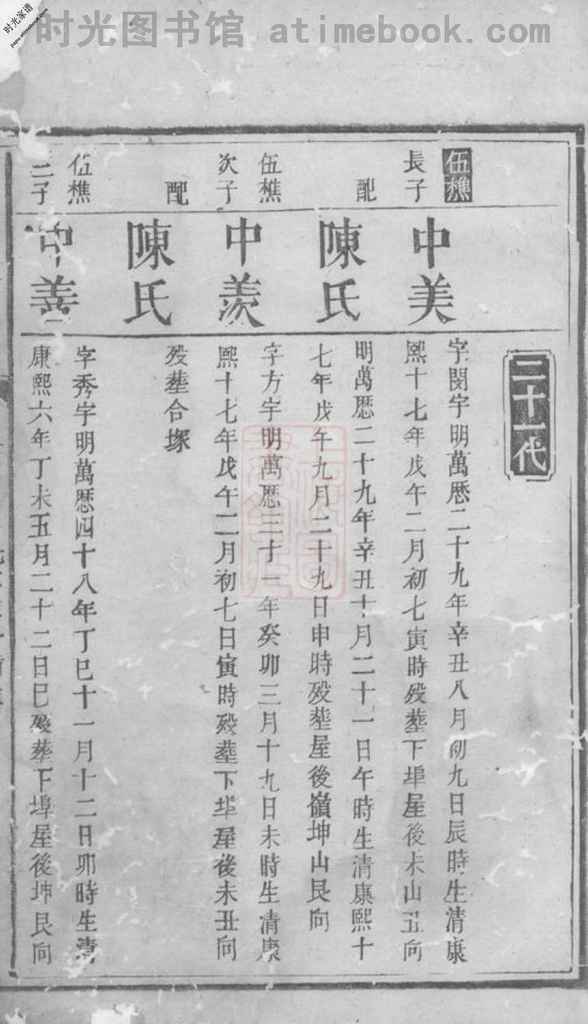 时光图书馆 atimebook.com
时光家谱
三十一代
伍樵
長子
中美
字閔宇明萬歷二十九年辛丑八月初九日辰時生清康
熙十七年戊午二月初七寅時殁葬下埠屋後未山丑向
配
陳氏
明萬歷二十九年辛丑十月二十一日午時生清康熙十
七年戊午九月二十九日申時殁葬屋後嶺坤山艮向
伍樵
次子
中羨
字方宇明萬歷三十一年癸卯三月十九日未時生清康
熙十七年戊午二月初七日寅時殁葬下埠屋後未丑向
配
陳氏
殁葬合塚
伍樵
三子
中善
字秀宇明萬歷四十八年丁巳十一月十二日卯時生清
康熙六年丁未五月二十二日巳殁葬下埠屋後坤艮向